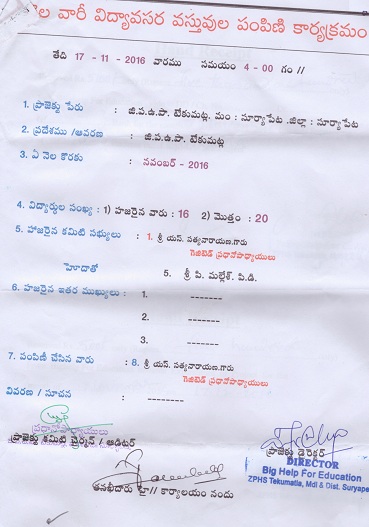 నెల వారీ విద్యావసర వస్తువుల పంపిణి కార్యక్రమం
తేది 17 - 11 - 2016 వారము సమయం 4 - 00 గం //
1. ప్రాజెక్టు పేరు : జి.ప.ఉ.పా. టేకుమట్ల, మం : సూర్యాపేట .జిల్లా : సూర్యాపేట
2. ప్రదేశము /ఆవరణ : జి.ప.ఉ.పా. టేకుమట్ల.
3. ఏ నెల కొరకు : నవంబర్ - 2016
4. విద్యార్థుల సంఖ్య : 1) హజరైన వారు : 16 2) మొత్తం : 20
5. హాజరైన కమిటి సభ్యులు : 1. శ్రీ యస్. సత్యనారాయణ.గారు
గెజిటెడ్ ప్రధానోపాధ్యాయులు
హెదాతో 5. శ్రీ పి. మల్లేశ్. పి.డి.
6. హజరైన ఇతర ముఖ్యులు : 1. -------
2. -------
3. -------
7. పంపిణీ చేసిన వారు : 8. శ్రీ యస్. సత్యనారాయణ.గారు
గెజిటెడ్ ప్రధానోపాధ్యాయులు
వివరణ / సూచన : --------
ప్రధానోపాధ్యాయులు
ప్రాజెక్టు కమిటి చైర్మన్ / ఆడిటర్
ప్రాజెక్టు డైరెక్టర్
DIRECTOR
Big Help For Education
ZPHS Tekumatla, Mdl & Dist. Suryapet
// కార్యాలయం నందు